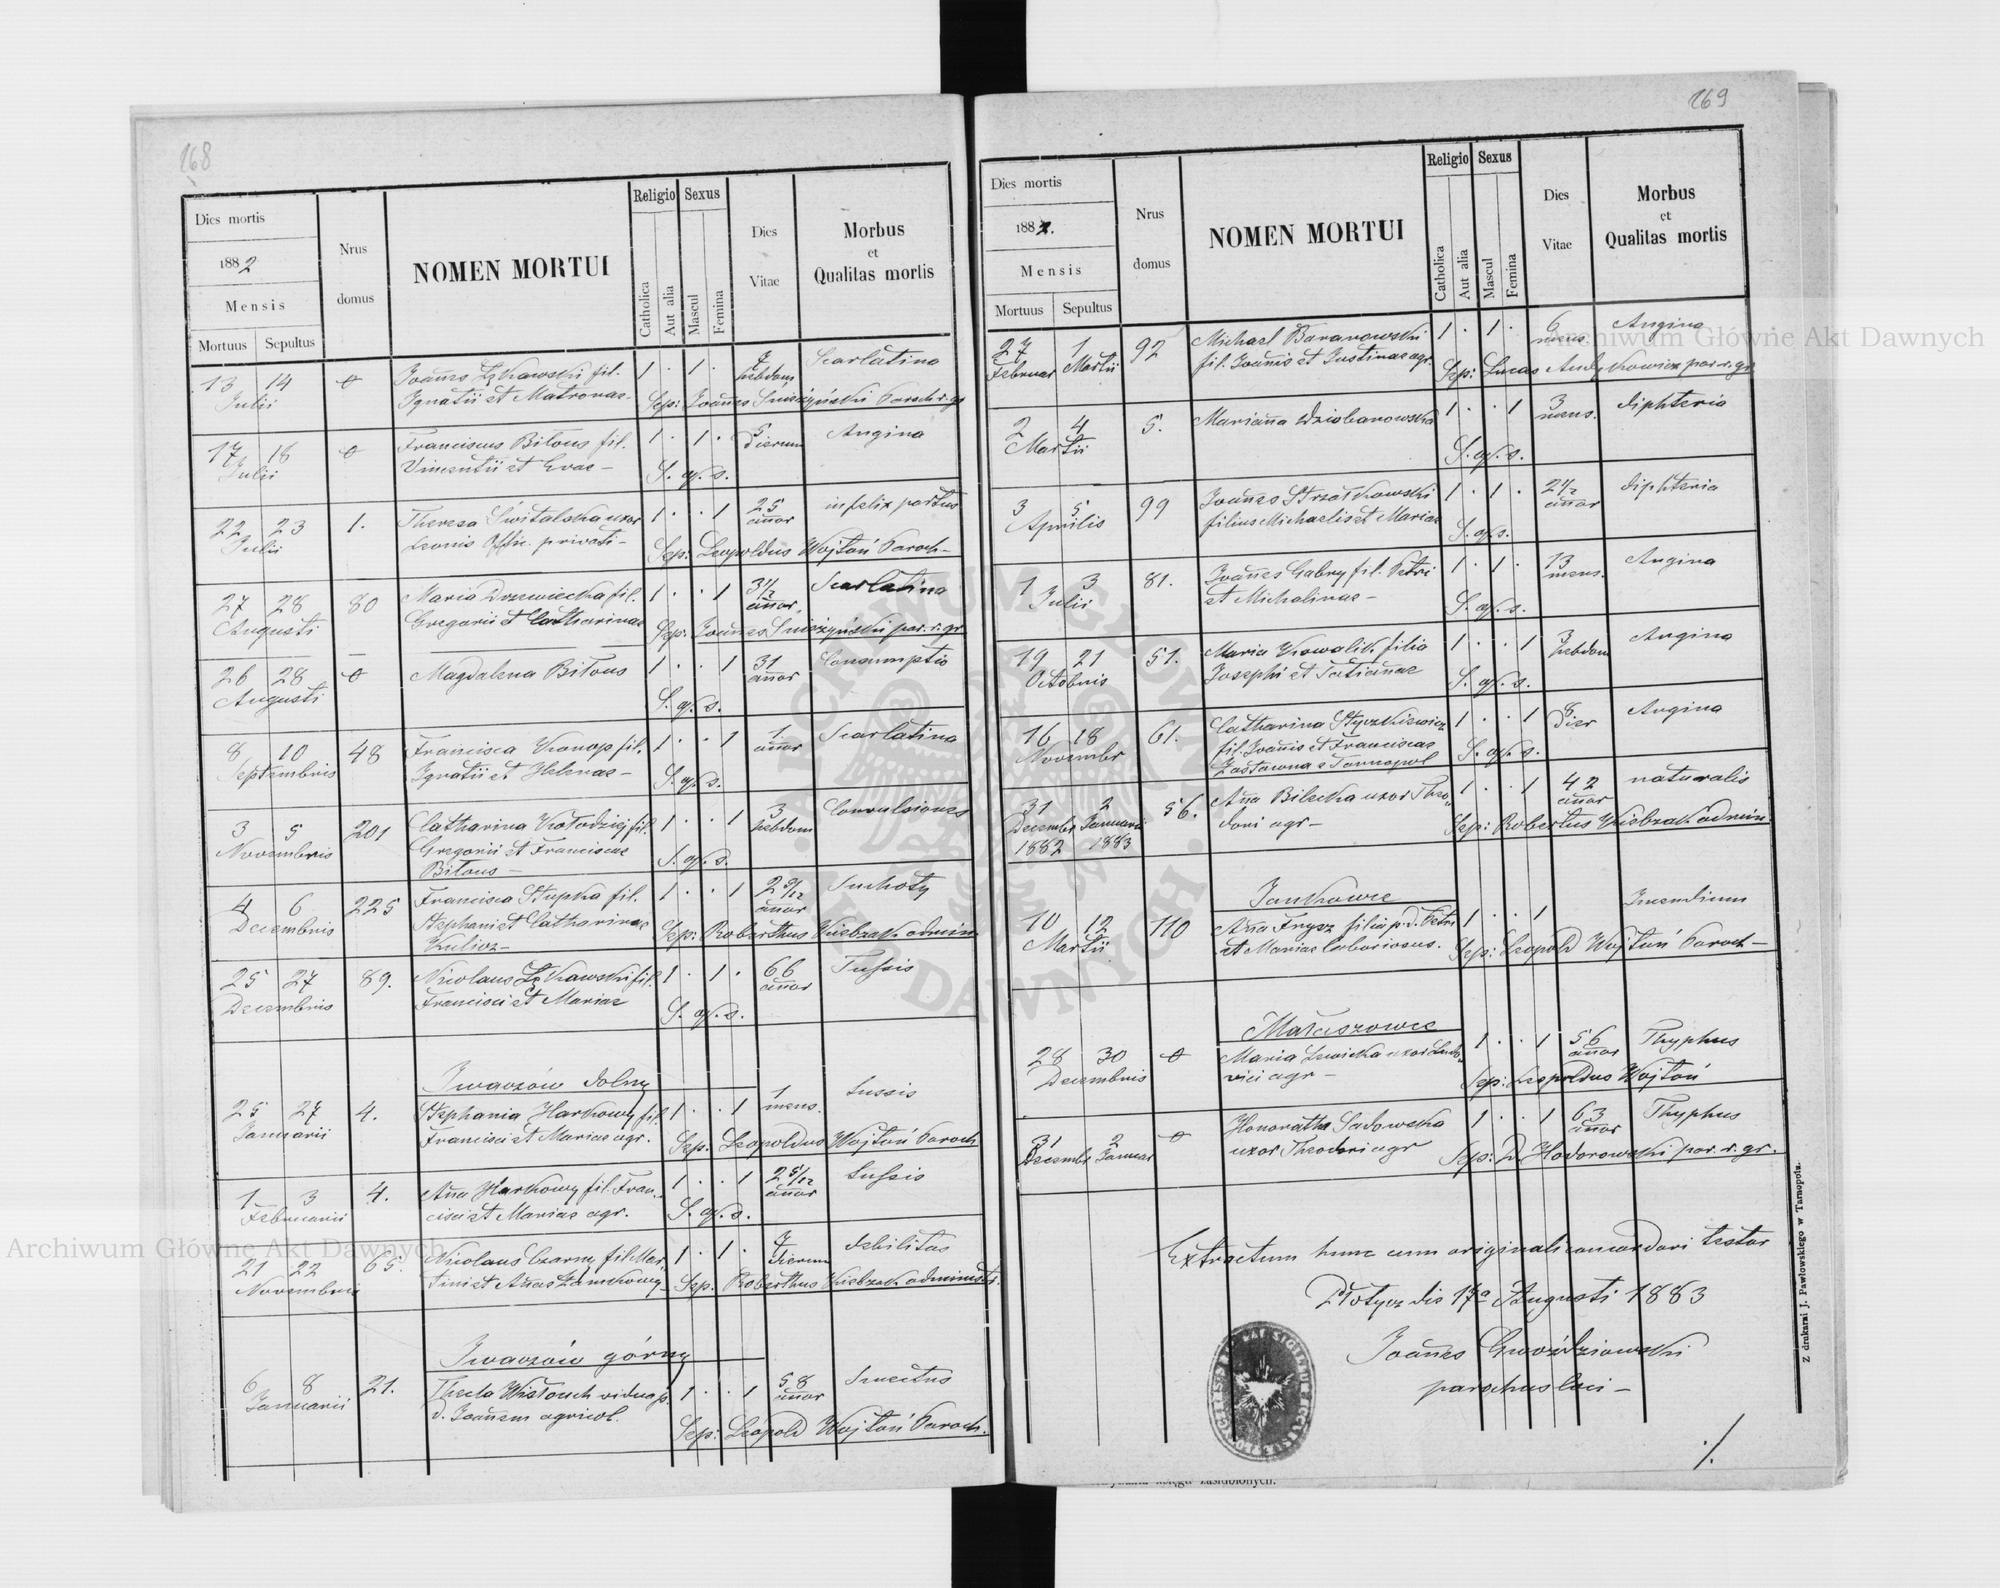 168
Dies mortis
1882
Mensis
Mortuus Sepultus
Nrus domus
NOMEN MORTUI
Religio
Catholica
Aut alia
Sexus
Mascul
Femina
Dies Vitae
Morbus
et
Qualitas mortis
13 14 Julii
Joañes Łękawski fil.
Ignatii et Matronae
1 . 1 .
7 hebdom
Scarlatina
Sep: Joañes Śnieżyński Paroch r. gr
17 18 Julii
Franciscus Bilous fil.
Vincentii et Evae –
1 . 1 .
5 dierum
Angina
S. q. s.
22 23 Julii
1.
Theresa Świtalska uxor
Leonis Offic. privati –
1 . . 1
25 añor
infelix partus
Sep: Leopoldus Wojtoń Paroch –
27 28 Augusti
80
Maria Drzewiecka fil.
Gregorii et Catharinae
1 . . 1
3 1/2 añor.
Scarlatina
Sep: Joañes Śnieżyński par. r. gr
26 28 Augusti
Magdalena Bilous
1 . . 1
31 añor
Consumptio
S. q. s.
8 10 Septembris
48
Francisca Konop fil.
Ignatii et Helenae –
1 . . 1
1 añor
Scarlatina
S. q. s.
3 5 Novembris
201
Catharina Kołodziej fil.
Gregorii et Franciscae
Bilous –
1 . . 1
3 hebdom
Convulsiones
S. q. s.
4 6 Decembris
225
Francisca Stupka fil.
Stephani et Catharinae
1 . . 1
añor
Suchoty
Sep: Roberthus Kiebzak admin
25 27 Decembris
89.
Nicolaus Łękawski fil.
Francisci et Mariae
1 . 1 .
66 añor
Tussis
S. q. s.
Iwaczów dolny
25 27 Januarii
4.
Stephania Harkowy fil.
Francisci et Mariae agr.
1 . . 1
1 mens.
tussis
Sep. Leopoldus Wojtoń Paroch
1 3 Februarii
4.
Aña Harkowy fil. Fran-
cisci et Mariae agr.
1 . . 1
2 5/12 añor
tussis
S. q. s.
21 22 Novembris
65.
Nicolaus Czarny fil Mar-
tini et Añae
1 . 1 .
7 dierum
debilitas
Sep. Roberthus Kiebzak administr.
Iwaczów górny
6 8 Januarii
21.
Thecla Wisłouch vidua p.
d. Joañem agricol.
1 . . 1
58 añor
Senectus
Sep: Leopold Wojtoń Paroch.
169
Dies mortis
1882.
Mensis
Mortuus Sepultus
Nrus domus
NOMEN MORTUI
Religio
Catholica
Aut alia
Sexus
Mascul
Femina
Dies Vitae
Morbus
et
Qualitas mortis
27 Februar 1 Martii
92
Michael Baranowski
fil. Joañis et Justinae agr.
1 . 1 .
6 mens
Angina
Sep: Lucas par. r. gr
2 4 Martii
5.
Mariaña Dziobanowska
1 . . 1
3 mens.
diphteria
S. q. s.
3 5 Aprilis
99
Joañes Strzałkowski
filius Michaelis et Mariae
1 . 1 .
2 1/2 añor
diphteria
S. q. s.
1 3 Julii
81.
Joañes Gabry fil. Petri
et Michalinae –
1 . 1 .
13 mens.
Angina
S. q. s.
19 21 Octobris
51.
Maria Kowalik filia
Josephi et Tatiañae
1 . . 1
3 hebdom
Angina
S. q. s.
16 18 Novembr
61.
Catharina Styczkiewicz
fil. Joañis et Franciscae
Zastawna e Tarnopol
1 . . 1
8 dier
Angina
S. q. s.
31 Decembr 1882 2 Januarii 1883
56.
Aña Bilecka uxor Theo-
dori agr –
1 . . 1
42 añor
naturalis
Sep: Robertus Kiebzak admin
Jankowce
10 12 Martii
110
Aña Frysz filia p. d. Petri
et Mariae laboriosus.
1 . . 1
Incendium
Sep: Leopold Wojtoń Paroch –
Małaszowce
28 30 Decembris
Maria Lewicka uxor Ludo-
vici agr –
1 . . 1
56 añor
Thyphus
Sep: Leopoldus Wojtoń
31 Decembr 2 Januar
Honoratha Sadowska
uxor Theodori agr
1 . . 1
63 añor
Thyphus
Sep: D. Hodorowski par. r. gr.
Extractum hunc cum originali concordari testor
Płotycz die 17a Augusti 1883
Joañes Gwoździowski
parochus loci –
./.
Z drukarni J. Pawłowskiego w Tarnopolu.
księgi zaślubionych.
Archiwum Główne Akt Dawnych
Archiwum Główne Akt Dawnych
ARCHIWUM GŁÓWNE AKT DAWNYCH